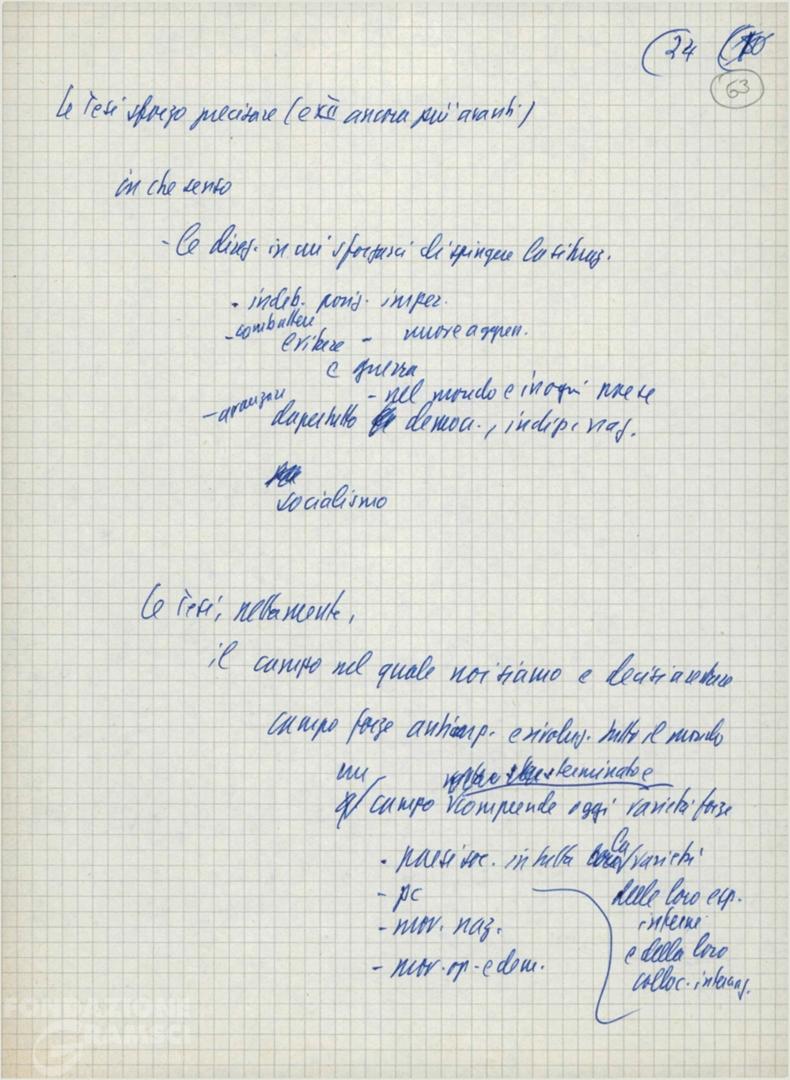 (24
63
Le Tesi sforzo precisare (e XII ancora più avanti)
in che senso
- le direz. in cui sforzarci di spingere la situaz.
• indeb. posiz. imper.
- combattere
evitare - nuove aggren.
e guerra
- avanzare - nel mondo e in ogni paese
dapertutto democr., indip. naz.
socialismo
Le Tesi, nettamente,
il campo nel quale noi siamo e decisi a restare
campo forze antimp. e rivoluz. tutto il mondo
un sterminato e
campo comprende oggi varietà forze
• paesi soc. in tutta la varietà
- pc delle loro esp.
interne
- mov. naz. e della loro
- mov. op. e dem. colloc. internaz.
FONDAZIONE
GRAMSCI